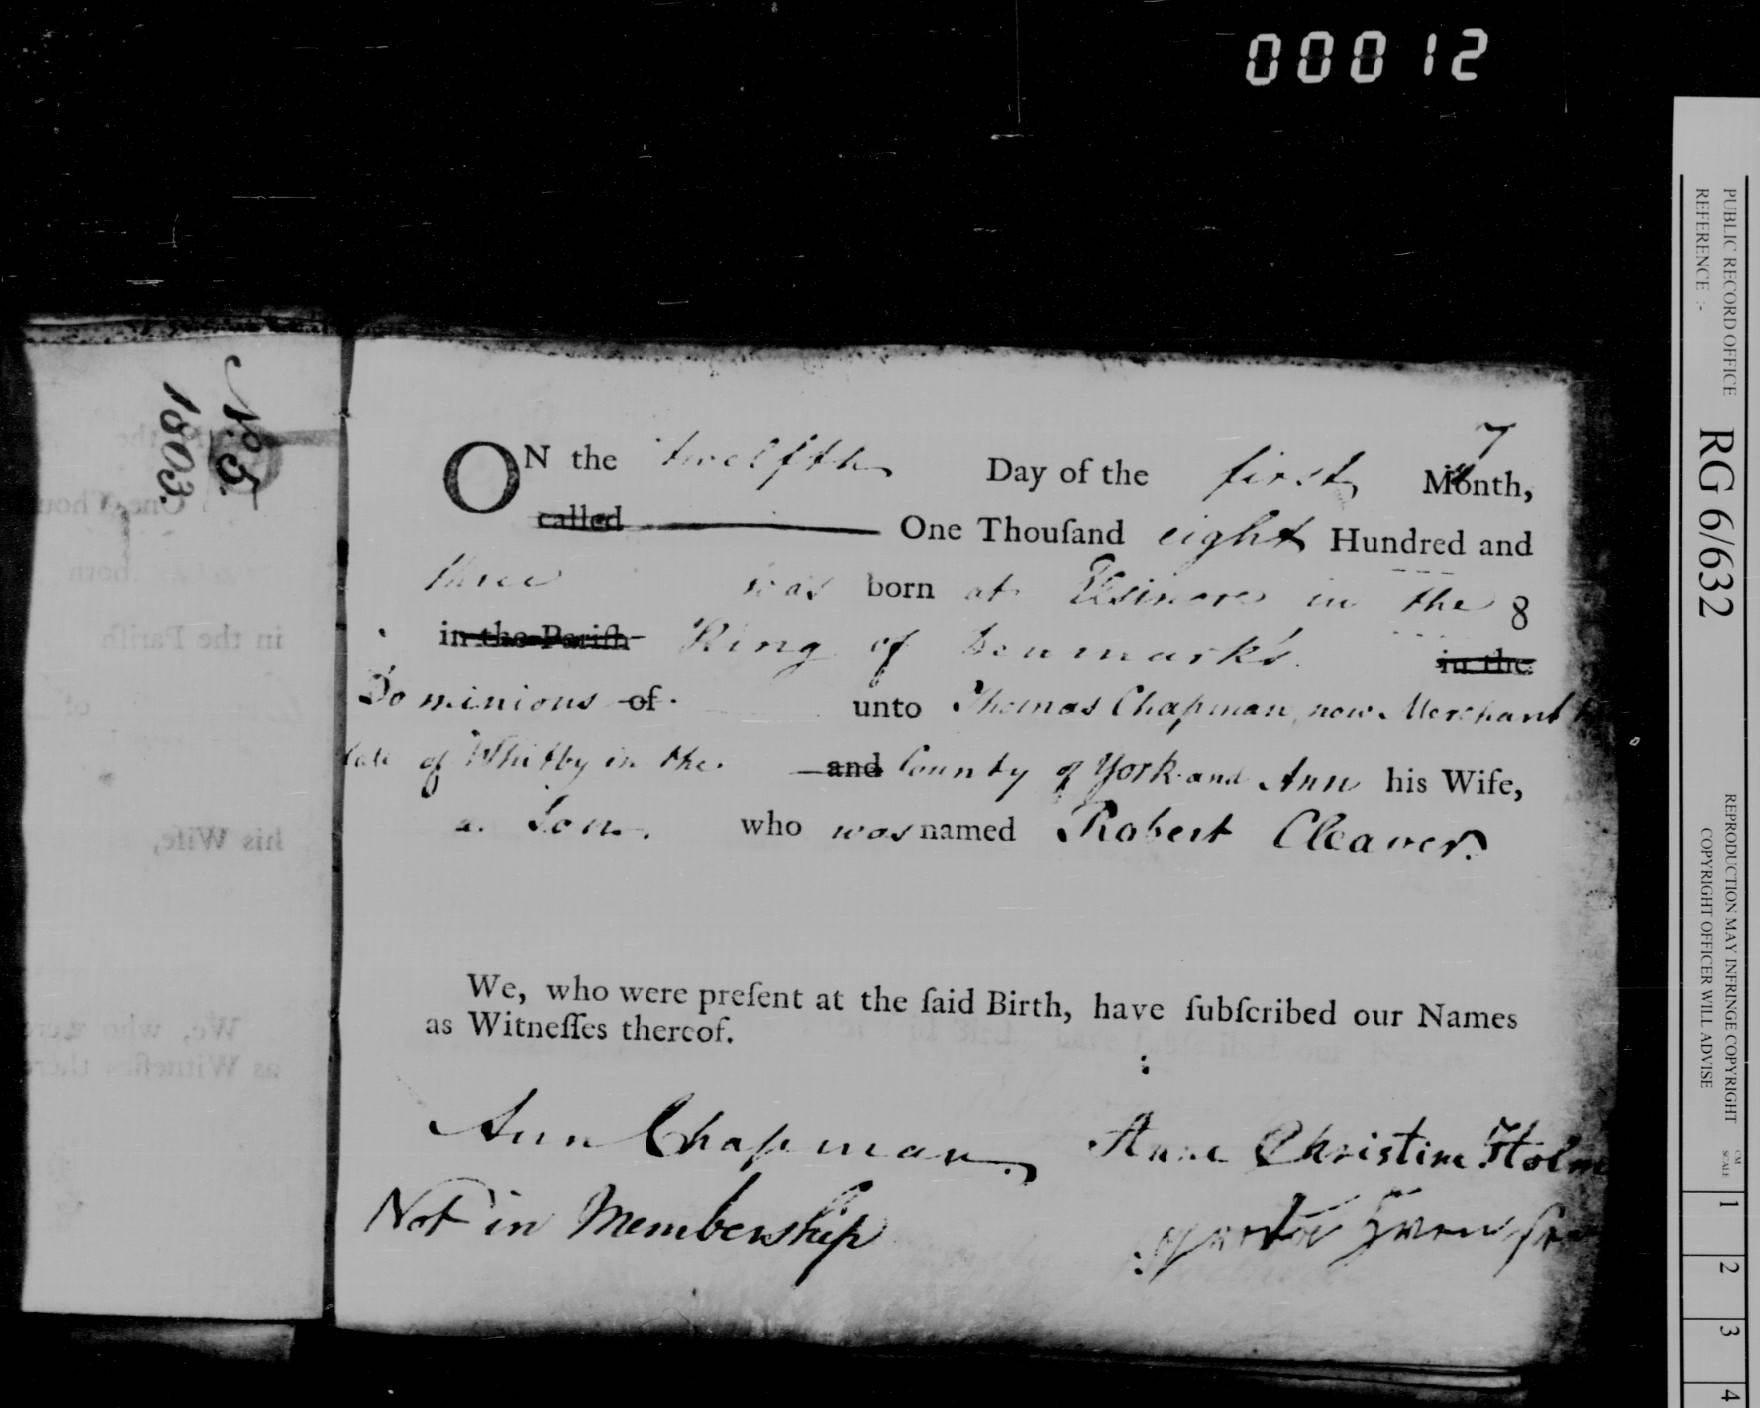 00012
No. 5.
1803.
7
ON the twelfth Day of the first Month,
called One Thouſand eight Hundred and
three was born at Elsinore in the 8
in the Pariſh King of Denmark's. in the
Dominions of unto Thomas Chapman, now Merchant
late of Whitby in the and County of York and Ann his Wife,
a Son. who was named Robert Cleaver.
We, who were preſent at the ſaid Birth, have ſubſcribed our Names
as Witneſſes thereof.
Ann Chapman. Anne Christine Holm
Not in Membership
PUBLIC RECORD OFFICE
REFERENCE :-
RG 6/632
REPRODUCTION MAY INFRINGE COPYRIGHT
COPYRIGHT OFFICER WILL ADVISE
CM
SCALE
1
2
3
4
in the Pariſh
his Wife,
We, who were
as Witneſſes there